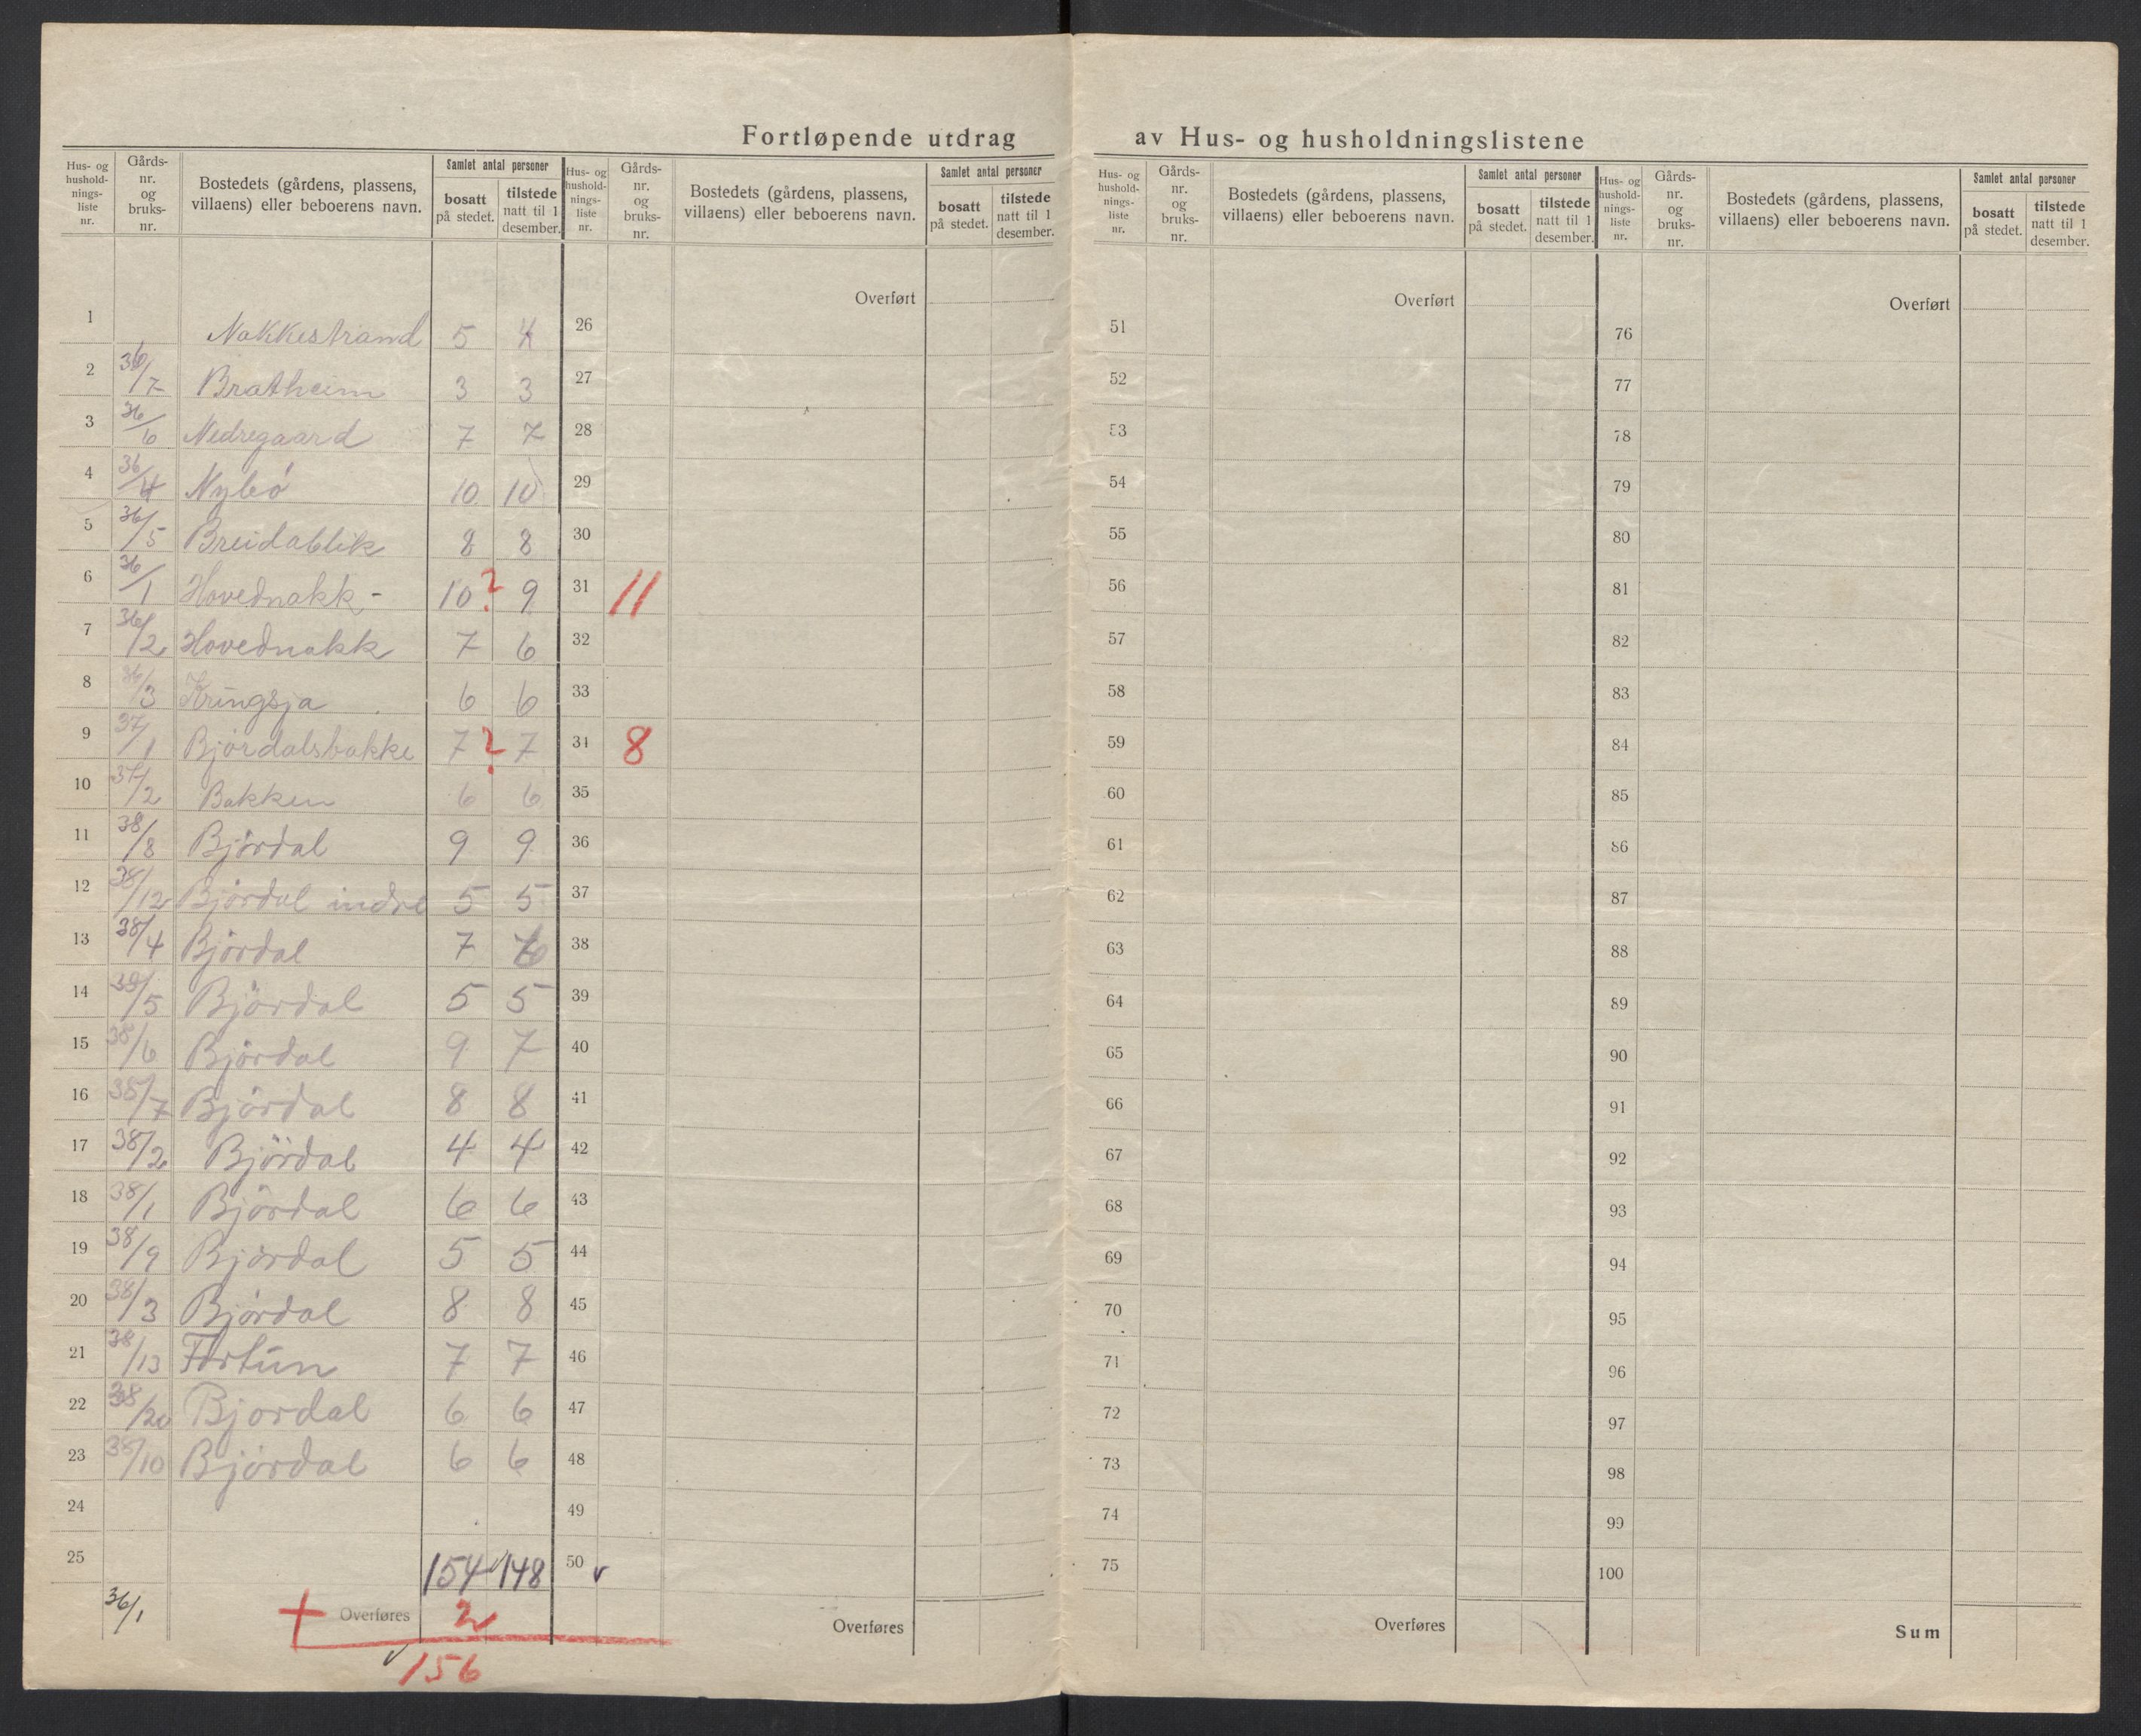 Fortløpende utdrag av Hus- og husholdningslistene
Hus- og hushold-nings-liste nr. Gårds-nr. og bruks-nr. Bostedets (gårdens, plassens, villaens) eller beboerens navn. Samlet antal personer bosatt på stedet. tilstede natt til 1 desember.
1 Nakkestrand 5 4
2 36/7 Bratheim 3 3
3 36/6 Nedregaard 7 7
4 36/4 Nybö 10 10
5 36/5 Breidablik 8 8
6 36/1 Hovednakk - 10 ? 9
7 36/2 Hovednakk 7 6
8 36/3 Kringsja 6 6
9 37/1 Bjørdalsbakke 7 ? 7
10 37/2 Bakken 6 6
11 38/8 Bjørdal 9 9
12 38/12 Bjørdal indre 5 5
13 38/4 Bjørdal 7 6
14 38/5 Bjørdal 5 5
15 38/6 Bjørdal 9 7
16 38/7 Bjørdal 8 8
17 38/2 Bjørdal 4 4
18 38/1 Bjørdal 6 6
19 38/9 Bjørdal 5 5
20 38/3 Bjørdal 8 8
21 38/13 Fortun 7 7
22 38/20 Bjordal 6 6
23 38/10 Bjørdal 6 6
24
25 154 148
36/1 + Overføres 2
156
Hus- og hushold-nings-liste nr. Gårds-nr. og bruks-nr. Bostedets (gårdens, plassens, villaens) eller beboerens navn. Samlet antal personer bosatt på stedet. tilstede natt til 1 desember.
Overført
26
27
28
29
30
31 11
32
33
34 8
35
36
37
38
39
40
41
42
43
44
45
46
47
48
49
50 v
Overføres
Hus- og hushold-nings-liste nr. Gårds-nr. og bruks-nr. Bostedets (gårdens, plassens, villaens) eller beboerens navn. Samlet antal personer bosatt på stedet. tilstede natt til 1 desember.
Overført
51
52
53
54
55
56
57
58
59
60
61
62
63
64
65
66
67
68
69
70
71
72
73
74
75
Overføres
Hus- og hushold-nings-liste nr. Gårds-nr. og bruks-nr. Bostedets (gårdens, plassens, villaens) eller beboerens navn. Samlet antal personer bosatt på stedet. tilstede natt til 1 desember.
Overført
76
77
78
79
80
81
82
83
84
85
86
87
88
89
90
91
92
93
94
95
96
97
98
99
100
Sum